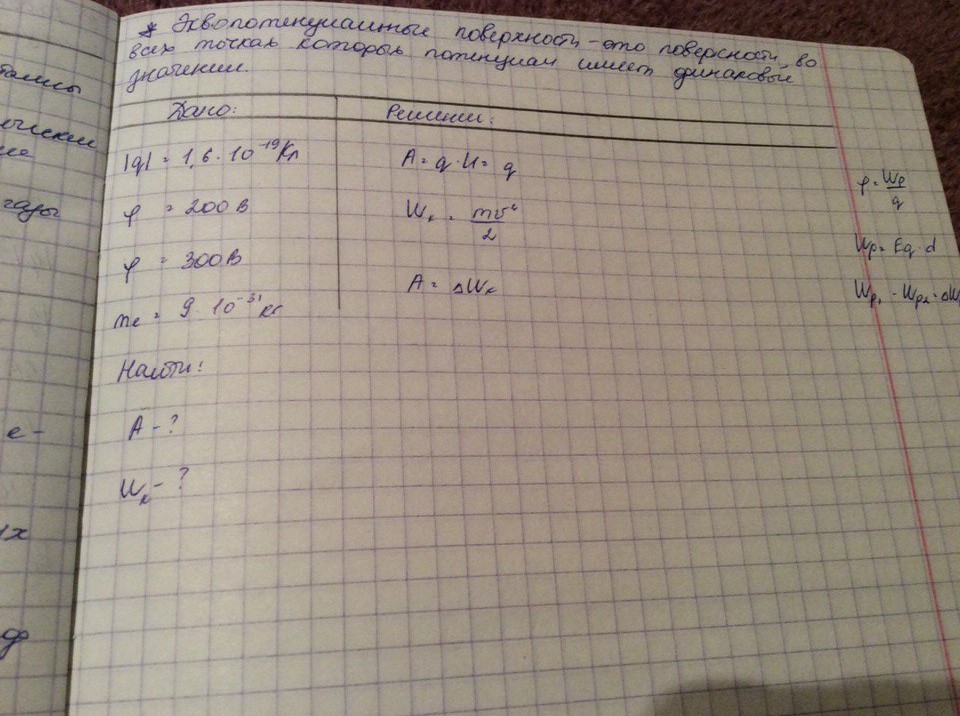 * Эквопотенциалтные поверхности - это поверхности, во
всех точках которых потенциал имеет одинаковые
значении.
Дано:
Решении:
|q| = 1,6 · 10⁻¹⁹ Кл
A = q · U = q
φ = 200 В
Wₖ = mv²/2
φ = 300 В
A = ΔWₖ
mₑ = 9 · 10⁻³¹ кг
Найти:
A - ?
Wₖ - ?
φ = Wp/q
Wp = Eq · d
Wp₁ - Wp₂ = ΔW
талисы
газы
е-
их